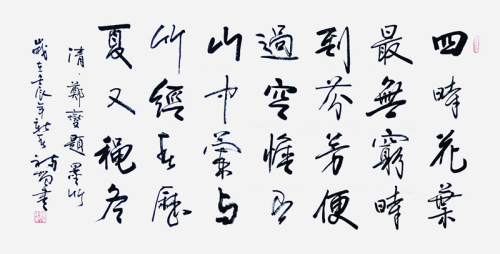 四時花葉
最無窮時
到芬芳便
過空惟有
山中蘭与
竹經春歷
夏又穐冬
清·鄭燮題墨竹
歲在壬辰年書